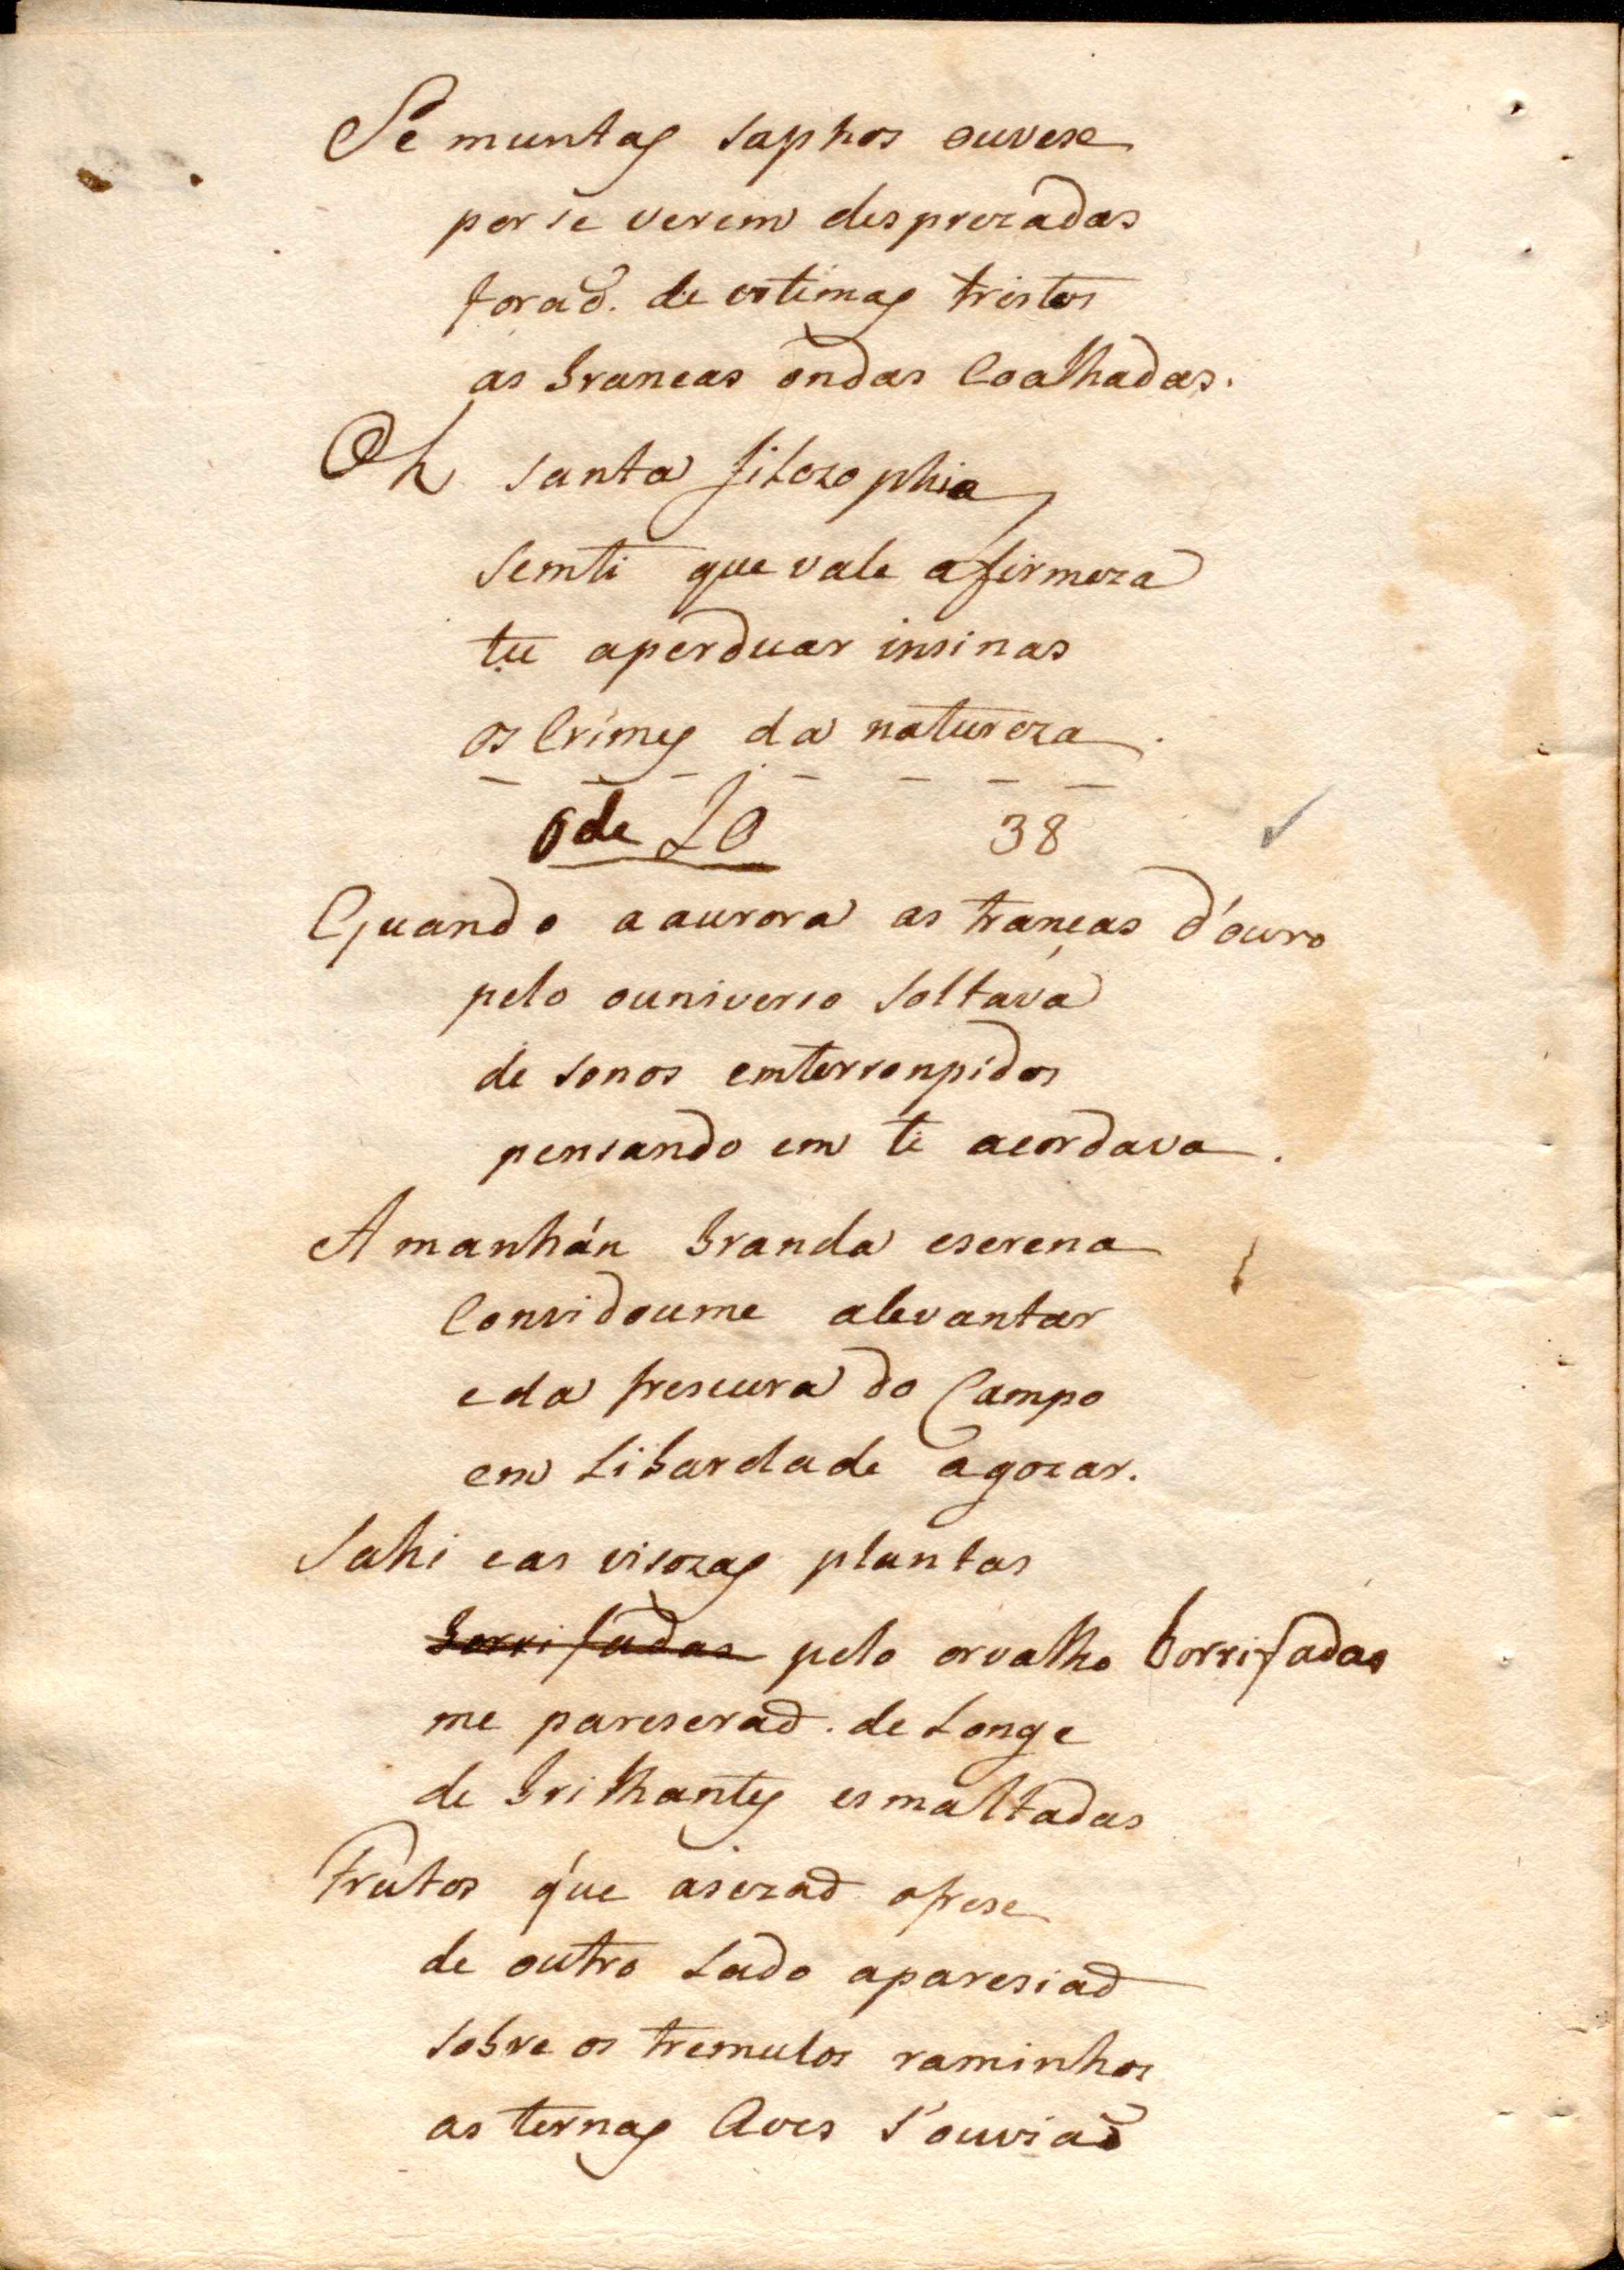 Se muntas saphos ouvese
por se verem desprezadas
forad. de vitimas tristes
as brancas ondas Coalhadas.
Oh santa filozophia
semti que vale afirmeza
tu aperduar insinas
os Crimes da natureza.
Ode 10 38
Quando a aurora as tranças d'ouro
pelo ouniverso soltava
de sonos emterronpidos
pensando em ti acordava.
A manhán branda eserena
Convidoume alevantar
eda frescura do Campo
em Libardade agozar.
Sahi eas visozas plantas
borrifadas pelo orvalho borrifadas
me pareserad. de Longe
de brilhantes esmaltadas
Frutos q'ue asezad ofrese
de outro Lado aparesiad
sobre os tremulos raminhos
as ternas Aves s'ouviad